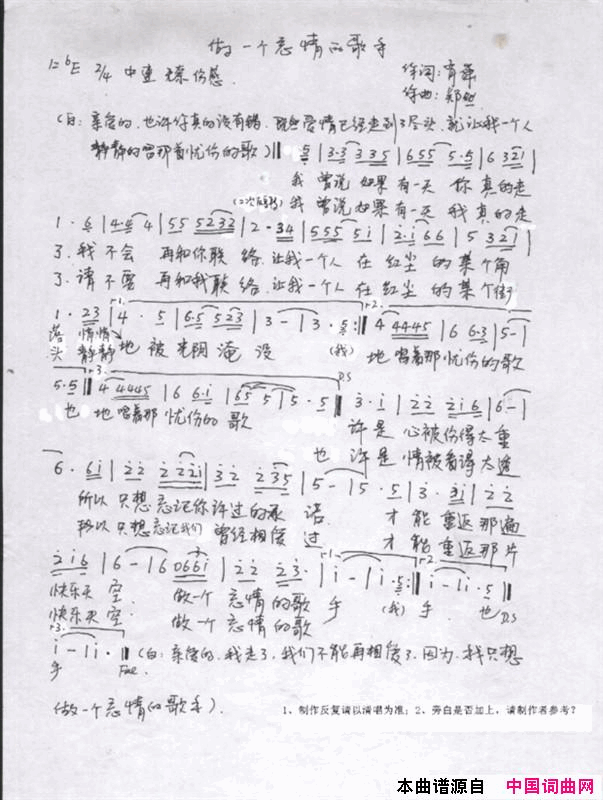 做一个忘情的歌手
1=♭E 2/4 中速 无奈 伤感
作词:
作曲:
(白:亲爱的,也许你真的没有错,既然爱情已经走到了尽头,就让我一个人
静静的唱那首忧伤的歌)
5 | 3·3 3 3 5 | 6 5 5 5·5 | 6 3 2 1 |
我 曾说如果 有一天 你真的走
(二次反复) 我 曾说如果有一天 我真的走
1 · 6 | 4·4 4 | 5 5 5 2 3 2 | 2 - 3 4 | 5 5 5 5 i | 2·i 6 6 | 5 3 2 1 |
了.我不会 再和你联 络.让我一个人 在红尘 的某个角
了.请不要 再和我联 络.让我一个人 在红尘 的某个街
1 · 2 3 | 4 · 5 | 6·5 5 2 3 | 3 - | 3 · 5 :‖ 4 4 4 4 5 | 6 6·3 | 5 - |
落 悄悄地 被 光阴 淹 没 (我) 地唱着那忧伤的歌
头 静静
5·5 ‖ 4 4 4 4 5 | 6 6·i | 6 5 5 | 5 · 5 ‖ 3 · i | 2 2 2 i 6 | 6 - |
也 地唱着那 忧伤的 歌 许是 心被伤得太重
也 许是 情被看得太透
6 · 6 i | 2 2 2 2 2 i | 3 2 2 3 5 | 5 - | 5 · 5 | 3 · 3 i | 2 2
所以 只想忘记你许过的承 诺 才能 重返那遍
所以 只想忘记我们 曾经相爱 过 才能 重返那片
2 i 6 | 6 - | 6 0 6 6 i | 2 2 2 3 · | i - | i · 5 :‖ i - | i · 5 ‖
快乐天 空. 做一个 忘情的歌 手 (我) 手 也 D.S
快乐天 空. 做一个 忘情的歌
i - | i · ‖ (白:亲爱的,我走了,我们不能再相爱了.因为.我只想
手 Fine
做一个忘情的歌手).
1、制作反复请以清唱为准;2、旁白是否加上,请制作者参考?
本曲谱源自 中国词曲网